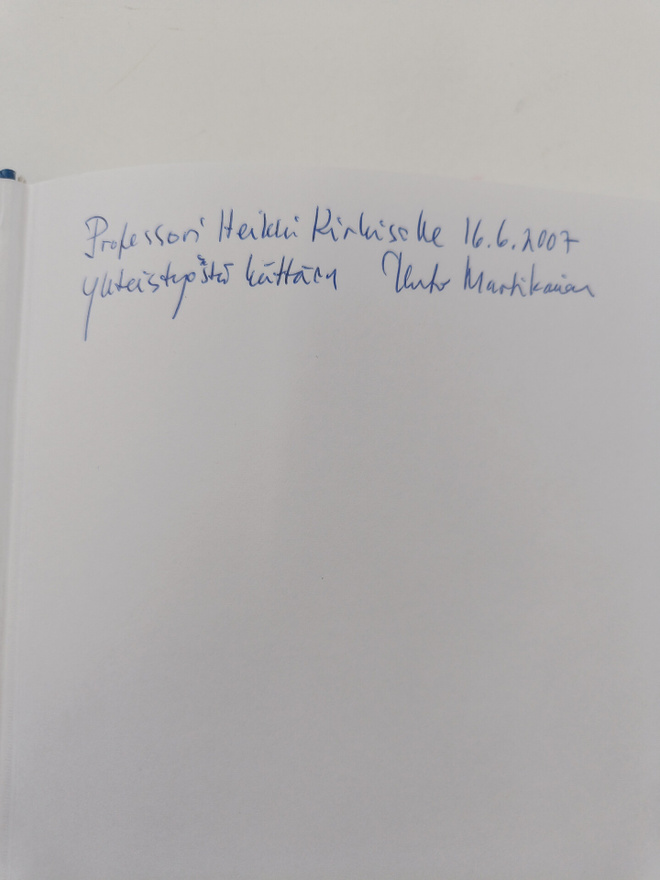 Professori Heikki Kirkiselle 16.6.2007
yhteistyöstä kättäen Unto Martikainen